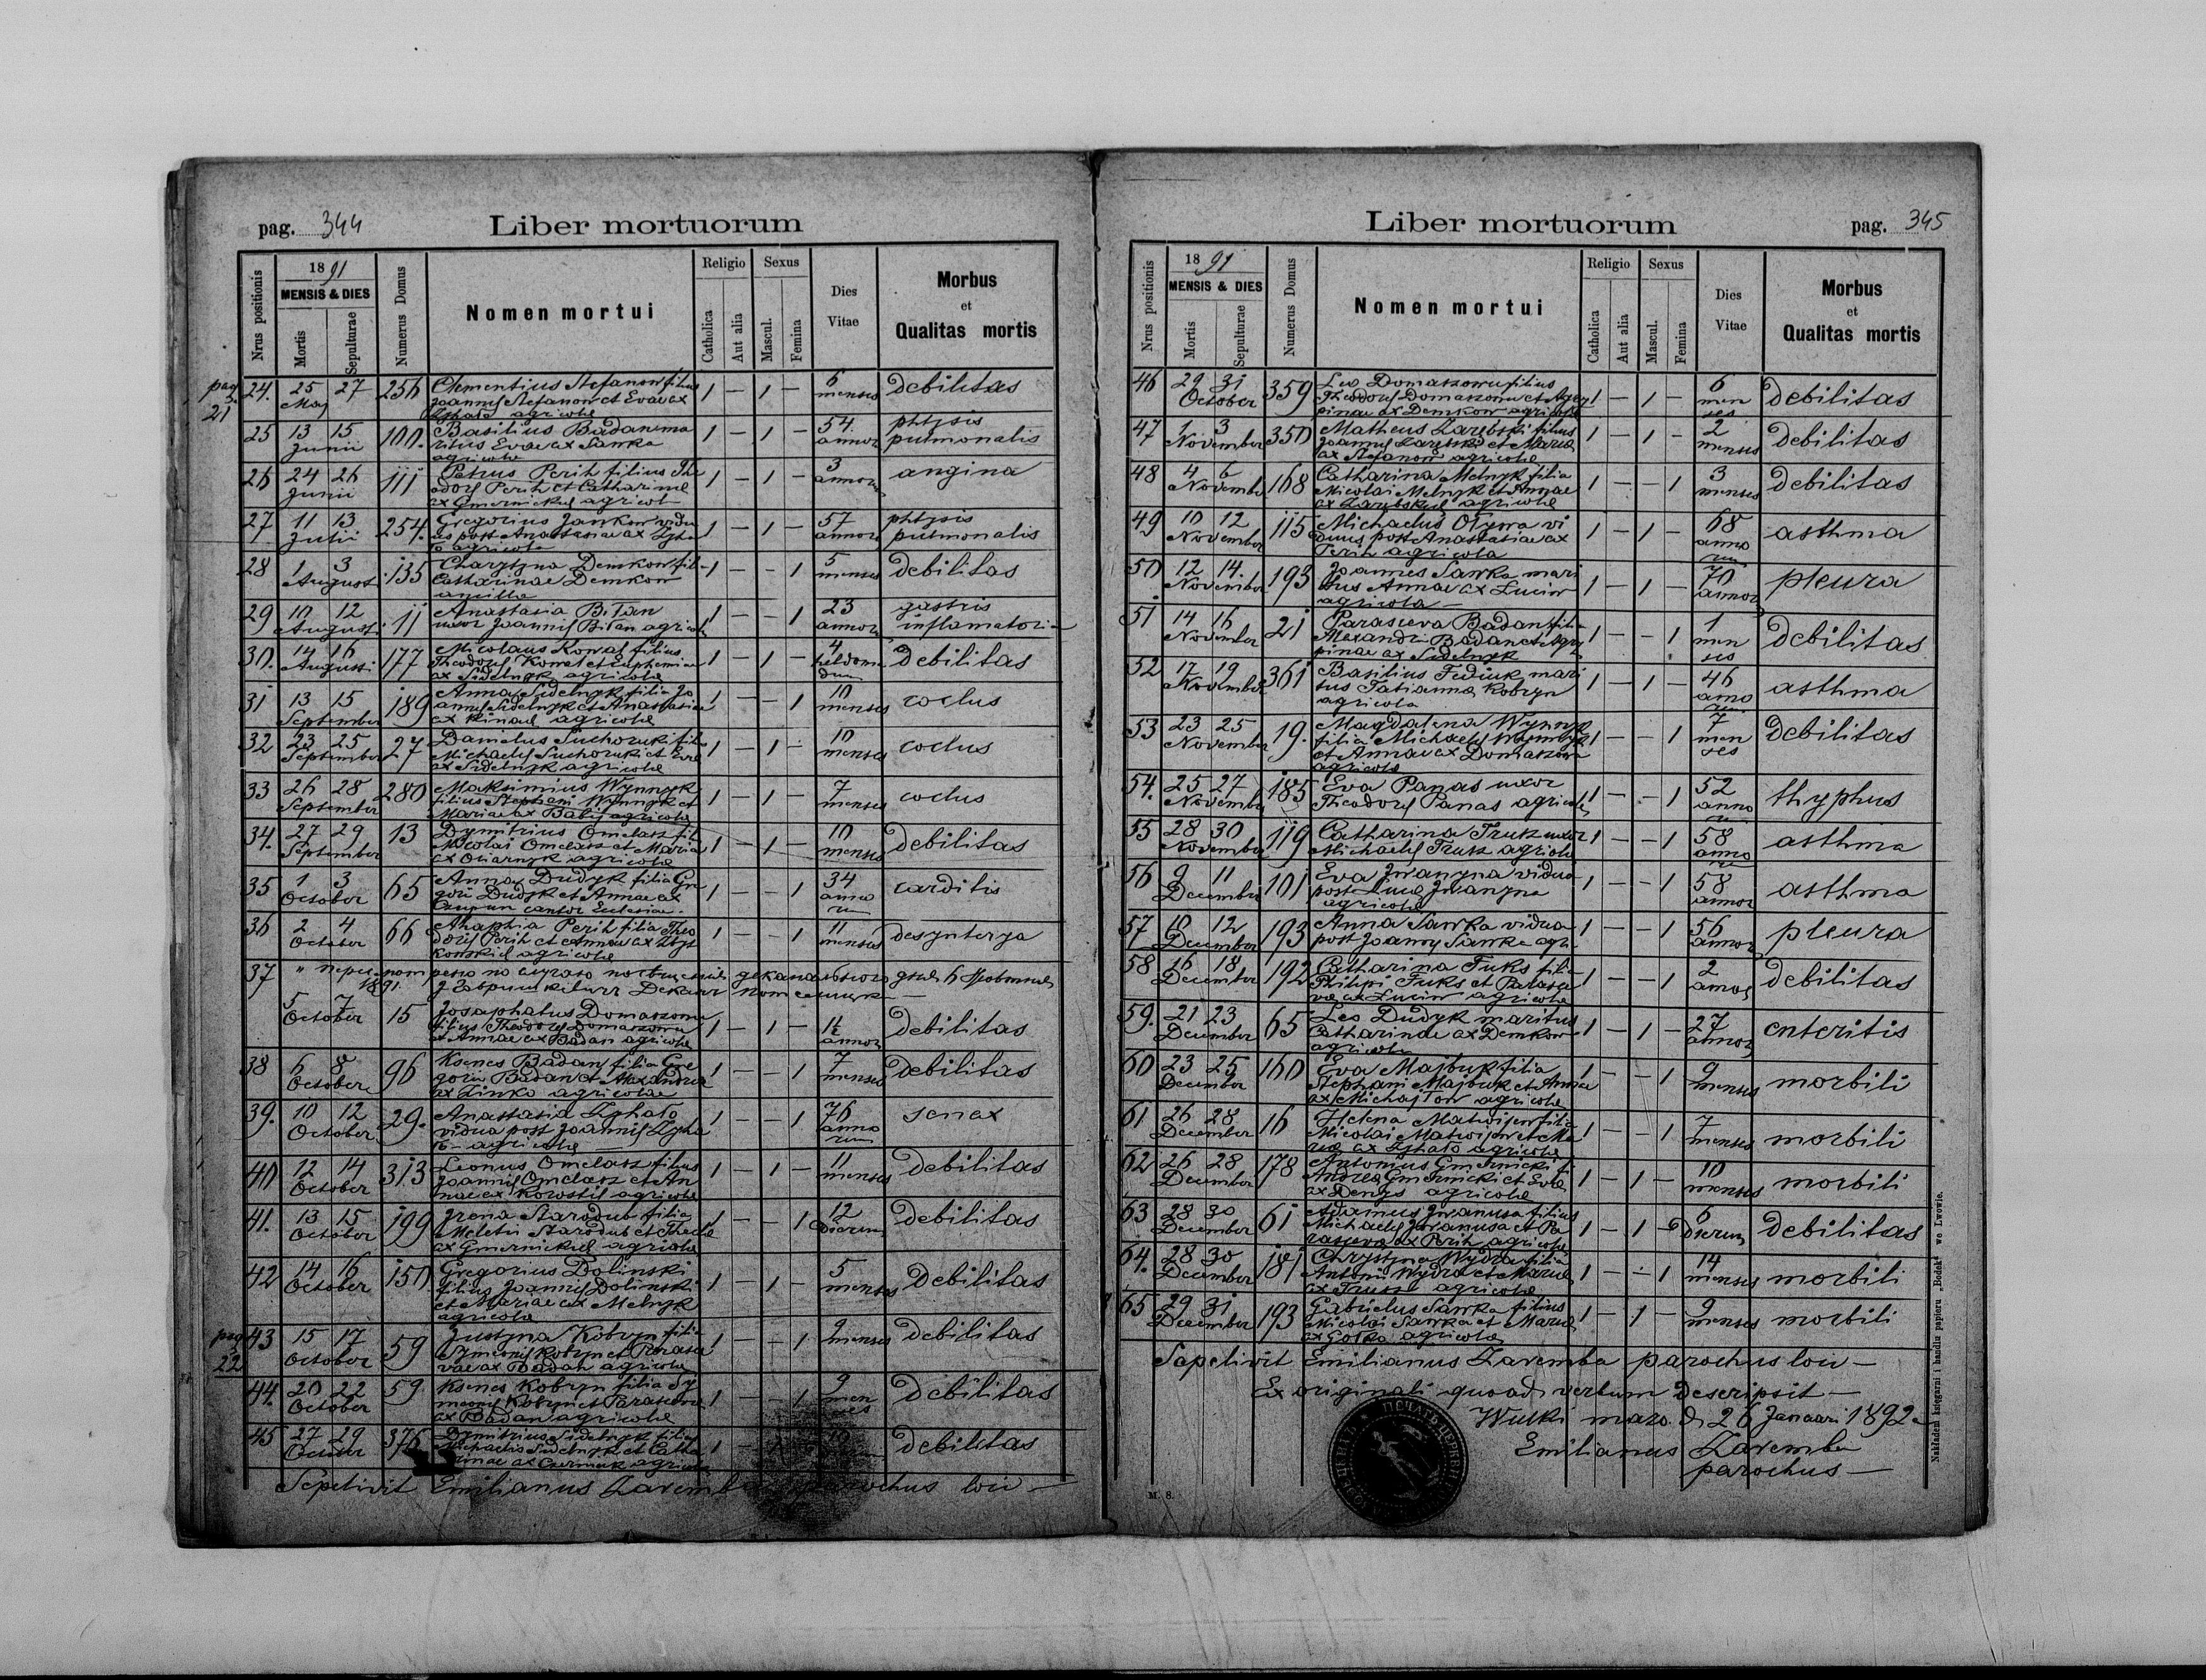 pag. 344
Liber mortuorum
Nrus positionis
1891
MENSIS & DIES
Mortis
Sepulturae
Numerus Domus
Nomen mortui
Religio
Catholica
Aut alia
Sexus
Mascul.
Femina
Dies
Vitae
Morbus
et
Qualitas mortis
pag
21
24. 25 27 256 Clementius Stefanow filius 1 — 1 — 6 debilitas
May Joannis Stefanow et Evae ex menses
agricolae
25 13 15 100. Basilius Badan ma 1 — 1 — 54 phtysis
Junii ritus Evae ex Sawka annor pulmonalis
agricola
26 24 26 111 Petrus Perih filius The 1 — 1 — 3 angina
Junii odori Perih et Catharinae annor
ex Gmernickie agricol
27 11 13 254. Gregorius Jankow vidu 1 — 1 — 57 phtysis
Julii us post Anastasiae ex Zyha annor pulmonalis
to agricola
28 1 3 135 Charytyna Demkow fil 1 — — 1 5 debilitas
August Catharinae Demkow menses
ancilla
29 10 12 11 Anastasia Bilan 1 — — 1 23 gastris
Augusti uxor Joannis Bilan agricola annor inflamatori
30. 14 16 177 Nicolaus Kowal filius 1 — 1 — 4 debilitas
Augusti Theodori Kowal et Euphemiae hebdoma
ex Sidelnyk agricolae dum
31 13 15 189 Anna Sidelnyk filia Jo 1 — — 1 10 coclus
September annis Sidelnyk et Anastasiae menses
ex Kinac agricolae
32 23 25 27 Daniclus Suchoruk fil 1 — 1 — 10 coclus
September Michaelis Suchoruk et Evae menses
ex Sidelnyk agricolae
33 26 28 280 Maksimius Wynnyk 1 — 1 — 7 coclus
September filius Stephani Wynnyk et menses
Mariae ex Babij agricolae
34. 27 29 13 Dymitrius Omelasz fil 1 — 1 — 10 debilitas
September Nicolai Omelasz et Maria menses
ex agricolae
35 1 3 65 Anna Dudyk filia Gre 1 — — 1 34 carditis
October gorii Dudyk et Annae ex anno
cantor Ecclesiae ru
36 2 4 66 Ahaphia Perih filia Theo 1 — — 1 11 desynterya
October doris Perih et Annae ex menses
agricolae
37
1891.
5 7 15 Josaphatus Domaszowu 1 — 1 — 1½ debilitas
October filius Theodori Domaszowu annor
et Annae ex Badan agricolae
38 6 8 96 Ksenes Badan filia Gre 1 — — 1 7 debilitas
October gorii Badan et Alexandrae menses
ex Zinko agricolae
39. 10 12 29. Anastasia Zyhato 1 — — 1 76 senex
October vidua post Joannis Zyha anno
to agricolae rum
40 12 14 313 Leonus Omelasz filius 1 — 1 — 11 debilitas
October Joannis Omelasz et An menses
nae ex Korostil agricolae
41. 13 15 199 Irena Starodub filia 1 — — 1 12 debilitas
October Meletii Starodub et Theclae dierum
ex Gmernickie agricolae
42 14 16 150 Gregorius Dolinski 1 — 1 — 5 debilitas
October filius Joannis Dolinski menses
et Mariae ex Melnyk
agricola
pag
22
43 15 17 59 Justyna Kobryn filia 1 — — 1 9 debilitas
October Symeonis Kobryn et Parasce menses
vae ex Badan agricolae
44. 20 22 59 Ksenes Kobryn filia Sy 1 — — 1 9 debilitas
October meonis Kobryn et Parascevae men
ex Badan agricolae ses
45 27 29 376 Dymitrius Sidelnyk filius 1 — debilitas
October Michaelis Sidelnyk et Catha
rinae ex agricolae
Sepelivit Emilianus Zaremba parochus loci —
Liber mortuorum
pag. 345
Nrus positionis
1891
MENSIS & DIES
Mortis
Sepulturae
Numerus Domus
Nomen mortui
Religio
Catholica
Aut alia
Sexus
Mascul.
Femina
Dies
Vitae
Morbus
et
Qualitas mortis
46 29 31 359 Leo Domaszowu filius 1 — 1 — 6 debilitas
October Theodori Domaszowu et Agry men
pinae ex Demkow agricolae ses
47 1 3 350 Matheus Zarebski filius 1 — 1 — 2 debilitas
November Joannis Zarebski et Mariae menses
ex Stefanow agricolae
48 4 6 168 Catharina Melnyk filia 1 — — 1 3 debilitas
November Nicolai Melnyk et Annae menses
ex Zarebskie agricolae
49 10 12 115 Michaelus Olywa vi 1 — 1 — 68 asthma
November duus post Anastasiae ex anno
Perih agricola rum
50 12 14. 193 Joannes Sawka mari 1 — 1 — 70 pleura
November tus Annae ex Luciw annor
agricola —
51 14 16 21 Parasceva Badan fili 1 — — 1 1 debilitas
November Alexandri Badan et Agry men
pinae ex Sidelnyk ses
52 17 19 361 Basilius Fediuk mari 1 — 1 — 46 asthma
November tus Tatianna Kobryn anno
agricola
53 23 25 19. Magdalena Wynnyk 1 — — 1 7 debilitas
November filia Michaelis Wynnyk men
et Annae ex Domaszowu ses
agricola
54. 25 27 185 Eva Panas uxor 1 — — 1 52 thyphus
November Theodori Panas agricola anno
55 28 30 119 Catharina Trusz uxor 1 — — 1 58 asthma
November Michaelis Trusz agricolae anno
56 9 11 101 Eva Iwanyna vidua 1 — — 1 58 asthma
December post Lucae Iwanyna annor
agricolae
57 10 12 193 Anna Sawka vidua 1 — — 1 56 pleura
December post Joannis Sawka agri annor
58 16 18 192 Catharina Fuks filia 1 — — 1 2 debilitas
December Philipi Fuks et Parasce annos
vae ex Luciw agricolae
59. 21 23 65 Leo Dudyk maritus 1 — 1 — 27 enteritis
December Catharinae ex Demkow annor
agricola
60 23 25 160 Eva Majbuk filia 1 — — 1 9 morbili
December Stephani Majbuk et Annae menses
ex Michajlow agricolae
61 26 28 16 Helena Matwijow filia 1 — — 1 7 morbili
December Nicolai Matwijow et Ma menses
riae ex Zyhato agricolae
62 26 28 178 Antonius Gmernicki f. 1 — 1 — 10 morbili
December Andreae Gmernicki et Evae menses
ex Denys agricolae
63 28 30 61 Adamus Iwanusa filius 1 — 1 — 6 debilitas
December Michaelis Iwanusa et Pa dierum
rascevae ex Perih agricolae
64. 28 30 181 Chrystyna Wydra filia 1 — — 1 14 morbili
December Antonii Wydra et Mariae menses
ex Trusz agricolae
65 29 31 193 Gabrielus Sawka filius 1 — 1 — 9 morbili
December Nicolai Sawka et Mariae menses
ex Golko agricolae
Sepelivit Emilianus Zaremba parochus loci —
Ex originali quoad verbum descripsit —
Wulki mazo. d. 26 Januari 1892
Emilianus Zaremba
parochus —
M. 8.
Nakładem księgarni i handlu papieru „Bodek“ we Lwowie.